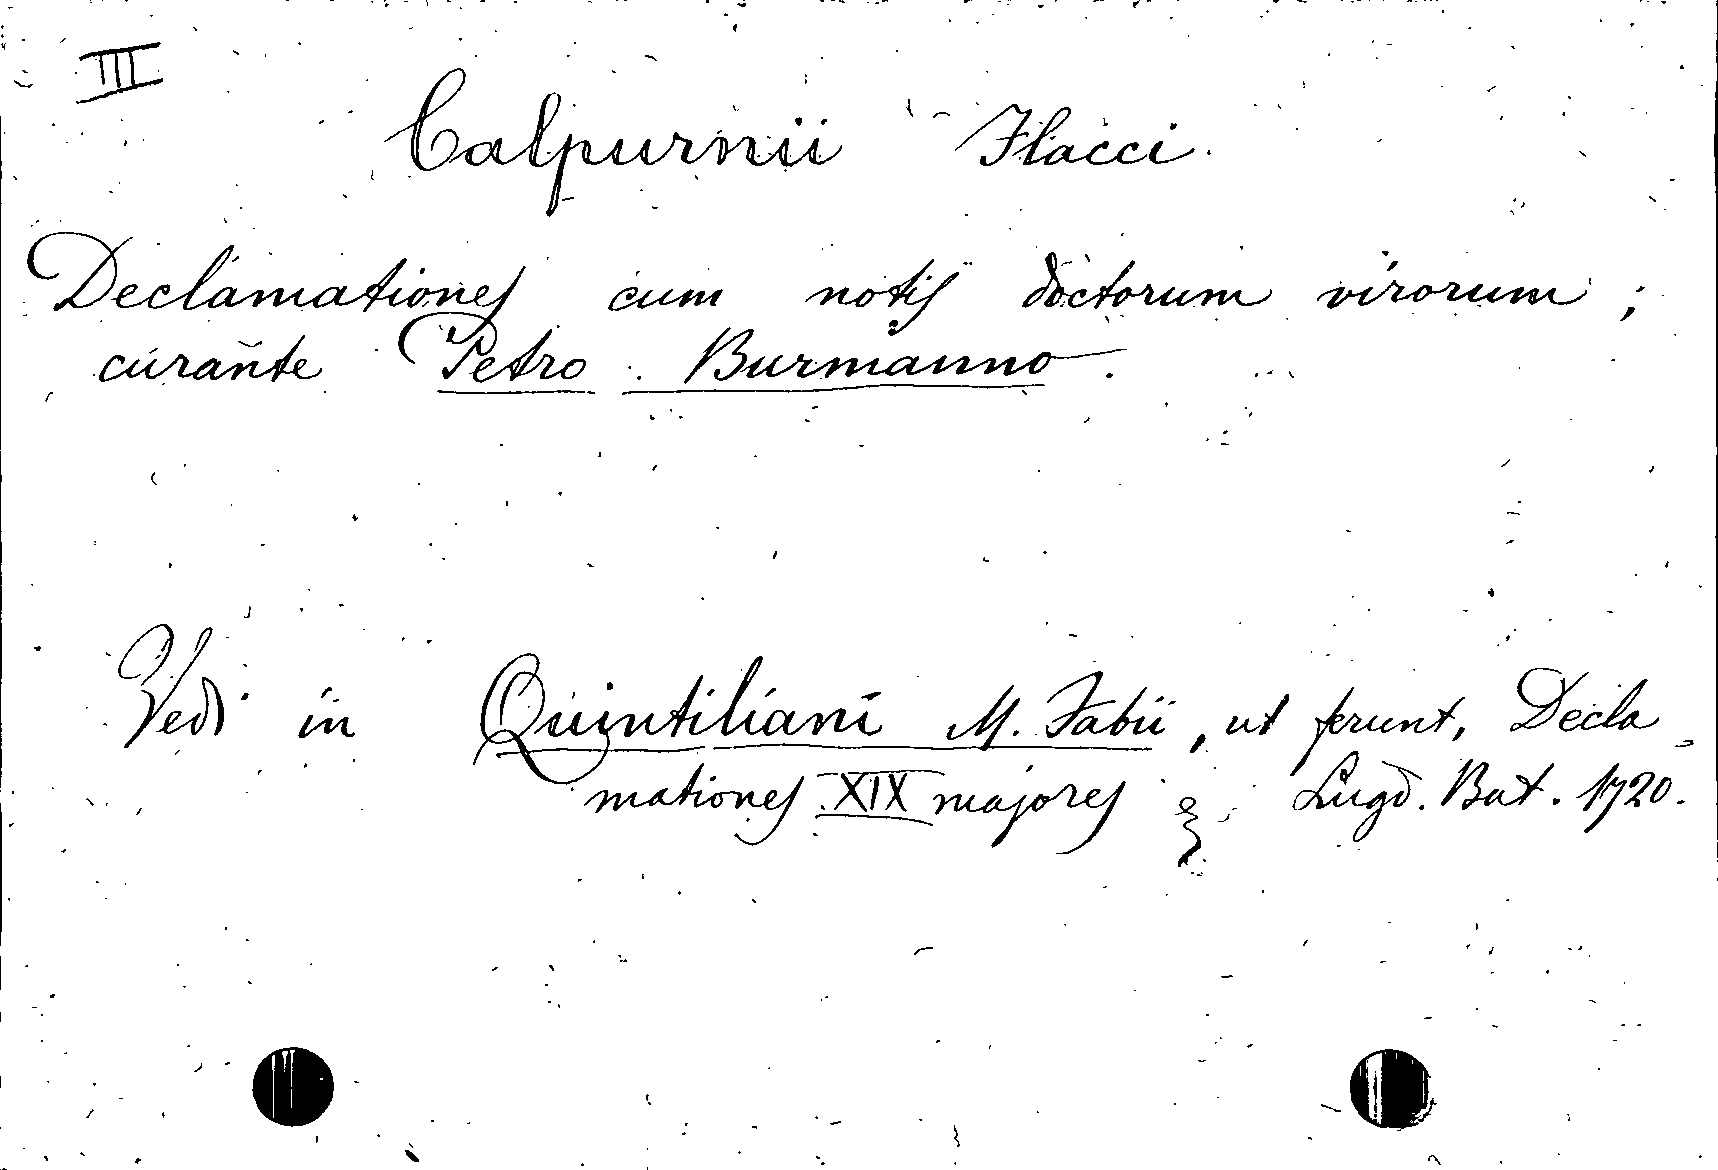 III
Calpurnii Flacci.
Declamationes cum notis doctorum virorum ;
curante Petro Burmanno.
Vedi in Quintiliani M. Fabii, ut ferunt, Decla
mationes XIX majores ; Lugd. Bat. 1720.